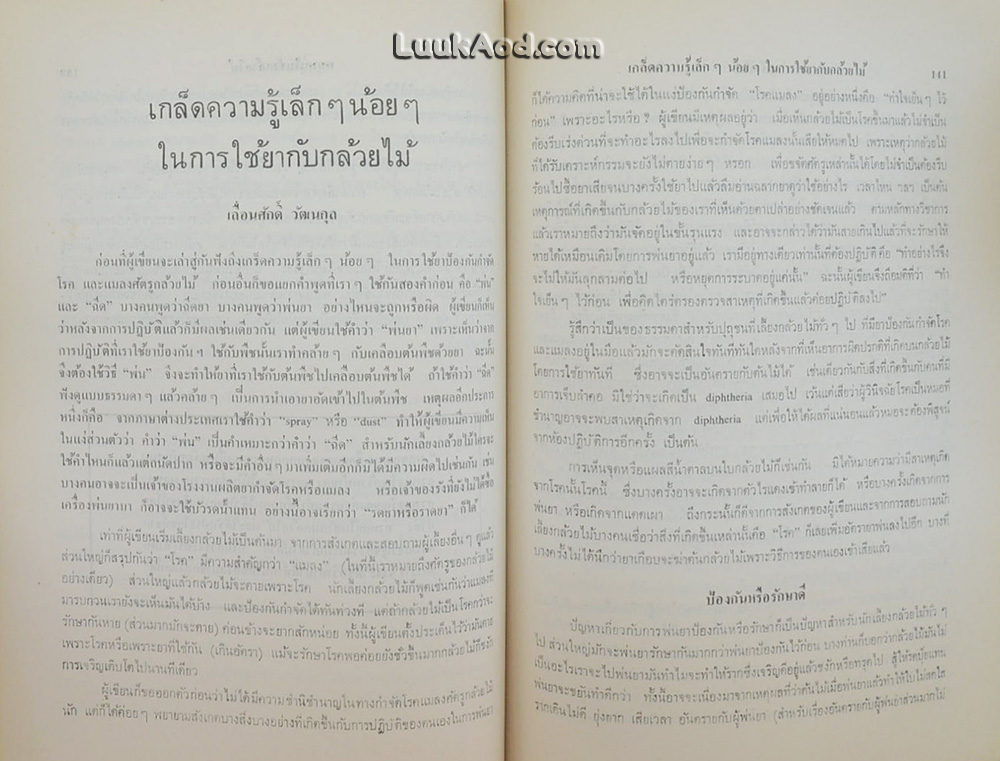 LuukAod.com
เกล็ดความรู้เล็ก ๆ น้อย ๆ
ในการใช้ยากับกล้วยไม้
เลื่อนศักดิ์ วัฒนกุล
ก่อนที่ผู้เขียนจะเล่าสู่กันฟังถึงเกร็ดความรู้เล็ก ๆ น้อย ๆ ในการใช้ยาป้องกันกำจัด
โรค และแมลงศัตรูกล้วยไม้ ก่อนอื่นก็ขอแยกคำพูดที่เรา ๆ ใช้กันสองคำก่อน คือ "พ่น"
และ "ฉีด" บางคนพูดว่าฉีดยา บางคนพูดว่าพ่นยา อย่างไหนจะถูกหรือผิด ผู้เขียนก็เห็น
ว่าหลังจากการปฏิบัติแล้วก็มีผลเช่นเดียวกัน แต่ผู้เขียนใช้คำว่า "พ่นยา" เพราะเห็นว่าจาก
การปฏิบัติที่เราใช้ยาป้องกัน ฯ ใช้กับพืชนั้นเราทำคล้าย ๆ กับเคลือบต้นพืชด้วยยา ฉะนั้น
จึงต้องใช้วิธี "พ่น" จึงจะทำให้ยาที่เราใช้กับต้นพืชไปเคลือบต้นพืชได้ ถ้าใช้คำว่า "ฉีด"
ฟังดูแบบธรรมดา ๆ แล้วคล้าย ๆ เป็นการนำเอายาอัดเข้าไปในต้นพืช เหตุผลอีกประการ
หนึ่งก็คือ จากภาษาต่างประเทศเราใช้คำว่า "spray" หรือ "dust" ทำให้ผู้เขียนมีความเห็น
ในแง่ส่วนตัวว่า คำว่า "พ่น" เป็นคำเหมาะกว่าคำว่า "ฉีด" สำหรับนักเลี้ยงกล้วยไม้ใครจะ
ใช้คำไหนก็แล้วแต่ถนัดปาก หรือจะมีคำอื่น ๆ มาเพิ่มเติมอีกก็มิได้มีความผิดไปเช่นกัน เช่น
บางคนอาจจะเป็นเจ้าของโรงงานผลิตยากำจัดโรคหรือแมลง หรือเจ้าของรังที่ยังไม่ได้ซื้อ
เครื่องพ่นยามา ก็อาจจะใช้บัวรดน้ำแทน อย่างนี้อาจเรียกว่า "รดยาหรือราดยา" ก็ได้
เท่าที่ผู้เขียนเริ่มเลี้ยงกล้วยไม้เป็นต้นมา จากการสังเกตและสอบถามผู้เลี้ยงอื่น ๆ ดูแล้ว
ส่วนใหญ่ก็สรุปกันว่า "โรค" มีความสำคัญกว่า "แมลง" (ในที่นี้เราหมายถึงศัตรูของกล้วยไม้
อย่างเดียว) ส่วนใหญ่แล้วกล้วยไม้จะตายเพราะโรค นักเลี้ยงกล้วยไม้ก็พูดเช่นกันว่าแมลงที่
มารบกวนเรายังจะเห็นมันได้บ้าง และป้องกันกำจัดได้ทันท่วงที แต่ถ้ากล้วยไม้เป็นโรคกว่าจะ
รักษากันหาย (ส่วนมากมักจะตาย) ค่อนข้างจะยากสักหน่อย ทั้งนี้ผู้เขียนตั้งประเด็นไว้ว่ามันตาย
เพราะโรคหรือเพราะยาที่ใช้กัน (เกินอัตรา) แม้จะรักษาโรคพอค่อยยังชั่วขึ้นมากกล้วยไม้ก็ชงัก
การเจริญเติบโตไปนานทีเดียว
ผู้เขียนก็ขอออกตัวก่อนว่าไม่ได้มีความชำนิชำนาญในทางกำจัดโรคแมลงศัตรูกล้วยไม้
นัก แต่ก็ได้ค่อย ๆ พยายามสังเกตบางสิ่งบางอย่างที่เกิดขึ้นกับการปฏิบัติของตนเองในการพ่นยา
เกล็ดความรู้เล็ก ๆ น้อย ๆ ในการใช้ยากับกล้วยไม้ 141
ก็ได้ความคิดที่น่าจะใช้ได้ในแง่ป้องกันกำจัด "โรคแมลง" อยู่อย่างหนึ่งคือ "ทำใจเย็น ๆ ไว้
ก่อน" เพราะอะไรหรือ ? ผู้เขียนมีเหตุผลอยู่ว่า เมื่อเห็นกล้วยไม้เป็นโรคขึ้นมาแล้วไม่จำเป็น
ต้องรีบเร่งด่วนที่จะทำอะไรลงไปเพื่อจะกำจัดโรคแมลงนั้นเสียให้หมดไป เพราะเหตุว่ากล้วยไม้
ที่ได้รับเคราะห์กรรมจะยังไม่ตายง่าย ๆ หรอก เพื่อขจัดศัตรูเหล่านั้นได้โดยไม่จำเป็นต้องรีบ
ร้อนไปซื้อยาเสียจนบางครั้งใช้ยาไปแล้วลืมอ่านฉลากยาดูว่าใช้อย่างไร เวลาไหน ฯลฯ เป็นต้น
เหตุการณ์ที่เกิดขึ้นกับกล้วยไม้ของเราที่เห็นด้วยตาเปล่าอย่างชัดเจนแล้ว ตามหลักทางวิชาการ
แล้วเราหมายถึงว่ามันจัดอยู่ในขั้นรุนแรง และอาจจะกล่าวได้ว่ามันสายเกินไปแล้วที่จะรักษาให้
หายได้เหมือนเดิมโดยการพ่นยาอยู่แล้ว เรามีอยู่ทางเดียวเท่านั้นที่ต้องปฏิบัติคือ "ทำอย่างไรจึง
จะไม่ให้มันลุกลามต่อไป หรือหยุดการระบาดอยู่แค่นั้น" ฉะนั้นผู้เขียนจึงถือมติที่ว่า "ทำ
ใจเย็น ๆ ไว้ก่อน เพื่อคิดใคร่ครองตรวจสาเหตุที่เกิดขึ้นแล้วค่อยปฏิบัติลงไป"
รู้สึกว่าเป็นของธรรมดาสำหรับปุถุชนที่เลี้ยงกล้วยไม้ทั่ว ๆ ไป ที่มียาป้องกันกำจัดโรค
และแมลงอยู่ในมือแล้วมักจะตัดสินใจทันทีทันใดหลังจากที่เห็นอาการผิดปรกติที่เกิดบนกล้วยไม้
โดยการใช้ยาทันที ซึ่งอาจจะเป็นอันตรายกับต้นไม้ได้ เช่นเดียวกับสิ่งที่เกิดขึ้นกับคนที่มี
อาการเจ็บลำคอ มิใช่ว่าจะเกิดเป็น diphtheria เสมอไป เว้นแต่เสียว่าผู้วินิจฉัยโรคเป็นหมอที่
ชำนาญอาจจะพบสาเหตุเกิดจาก diphtheria แต่เพื่อให้ได้ผลที่แน่นอนแล้วหมอจะต้องพิสูจน์
จากห้องปฏิบัติการอีกครั้ง เป็นต้น
การเห็นจุดหรือแผลสีน้ำตาลบนใบกล้วยไม้ก็เช่นกัน มิได้หมายความว่ามีสาเหตุเกิด
จากโรคนั้นโรคนี้ ซึ่งบางครั้งอาจจะเกิดจากตัวไรแดงเข้าทำลายก็ได้ หรือบางครั้งเกิดจากการ
พ่นยา หรือเกิดจากแดดเผา ถึงกระนั้นก็ดีจากการสังเกตของผู้เขียนและจากการสอบถามนัก
เลี้ยงกล้วยไม้บางคนเชื่อว่าสิ่งที่เกิดขึ้นเหล่านั้นคือ "โรค" ก็เลยเพิ่มอัตรายาพ่นลงไปอีก บางที
บางครั้งไม่ได้นึกว่ายาเกือบจะฆ่าต้นกล้วยไม้เพราะวิธีการของตนเองเข้าเสียแล้ว
ป้องกันหรือรักษาดี
ปัญหาเกี่ยวกับการพ่นยาป้องกันหรือรักษาก็เป็นปัญหาสำหรับนักเลี้ยงกล้วยไม้ทั่ว ๆ
ไป ส่วนใหญ่มักจะพ่นยารักษากันมากกว่าพ่นยาป้องกันไว้ก่อน บางท่านก็บอกว่ากล้วยไม้มันไม่
เป็นอะไรเราจะไปพ่นยามันทำไมจะทำให้รากซึ่งเจริญดีอยู่แล้วชงักหรือทรุดไป สู้ให้รดปุ๋ยแทน
พ่นยาจะขยันทำดีกว่า ทั้งนี้อาจจะเนื่องมาจากเหตุผลที่ว่าต้นไม้เมื่อพ่นยาแล้วทำให้ใบไม่สดใส
รากเดินไม่ดี ยุ่งยาก เสียเวลา อันตรายกับผู้พ่นยา (สำหรับเรื่องอันตรายกับผู้พ่นยาส่วนมากไม่